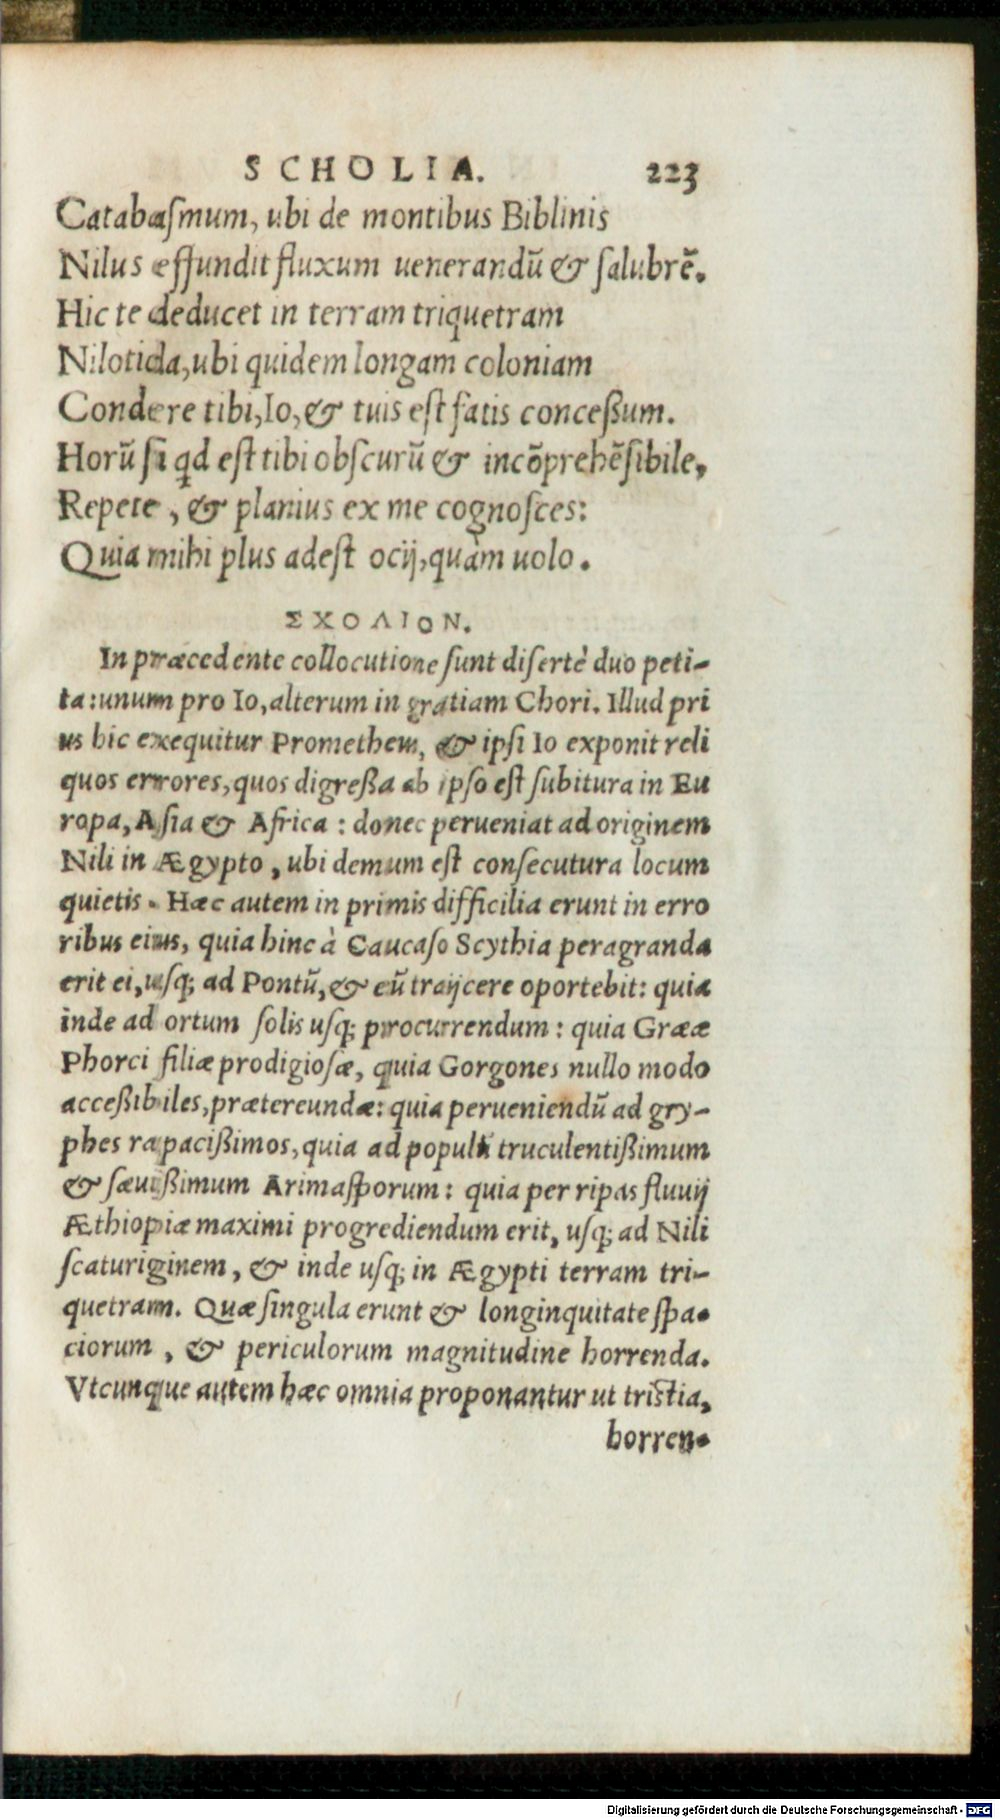 SCHOLIA. 223
Catabaſmum, ubi de montibus Biblinis
Nilus effundit fluxum uenerandũ & ſalubrẽ.
Hic te deducet in terram triquetram
Nilotida, ubi quidem longam coloniam
Condere tibi, Io, & tuis eſt fatis conceßum.
Horũ ſi qd eſt tibi obſcurũ & incõprehẽſibile,
Repete, & planius ex me cognoſces:
Quia mihi plus adeſt ocij, quàm uolo.
ΣΧΟΛΙΟΝ.
In præcedente collocutione ſunt diſertè duo peti-
ta: unum pro Io, alterum in gratiam Chori. Illud pri
us hic exequitur Prometheus, & ipſi Io exponit reli
quos errores, quos digreßa ab ipſo eſt ſubitura in Eu
ropa, Aſia & Africa: donec perueniat ad originem
Nili in Ægypto, ubi demum eſt conſecutura locum
quietis. Hæc autem in primis difficilia erunt in erro
ribus eius, quia hinc à Caucaſo Scythia peragranda
erit ei, uſq; ad Pontũ, & eũ traijcere oportebit: quia
inde ad ortum ſolis uſq; procurrendum: quia Grææ
Phorci filiæ prodigioſæ, quia Gorgones nullo modo
acceßibiles, prætereundæ: quia perueniendũ ad gry-
phes rapacißimos, quia ad populũ truculentißimum
& ſæuißimum Arimaſporum: quia per ripas fluuij
Æthiopiæ maximi progrediendum erit, uſq; ad Nili
ſcaturiginem, & inde uſq; in Ægypti terram tri-
quetram. Quæ ſingula erunt & longinquitate ſpa-
ciorum, & periculorum magnitudine horrenda.
Vtcunque autem hæc omnia proponantur ut triſtia,
horren-
Digitalisierung gefördert durch die Deutsche Forschungsgemeinschaft - DFG